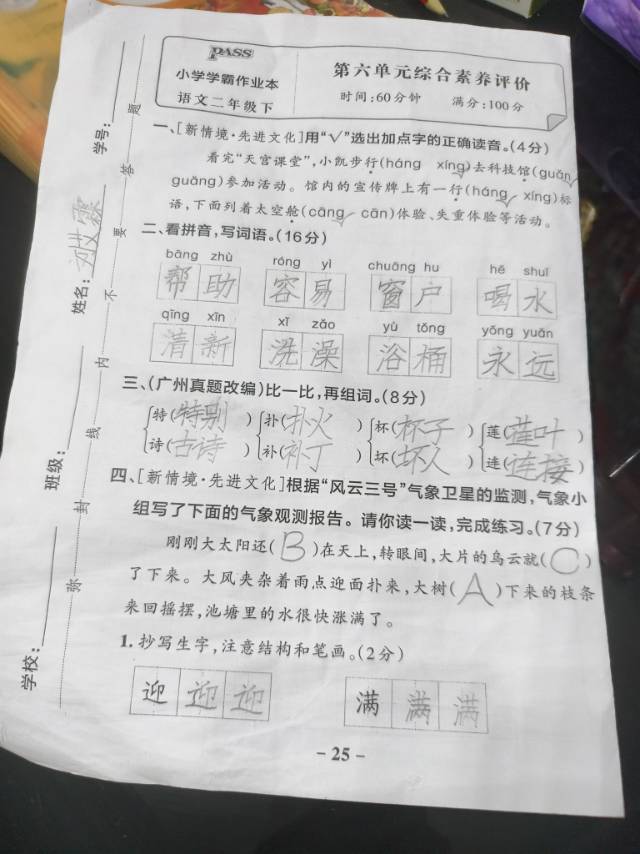 PASS
小学学霸作业本
语文二年级下
第六单元综合素养评价
时间:60分钟 满分:100分
一、[新情境·先进文化]用“√”选出加点字的正确读音。(4分)
看完“天宫课堂”,小凯步行(háng xíng√)去科技馆(guǎn√
guāng)参加活动。馆内的宣传牌上有一行(háng√ xíng)标
语,下面列着太空舱(cāng√ cān)体验、失重体验等活动。
二、看拼音,写词语。(16分)
bāng zhù róng yì chuāng hu hē shuǐ
帮助 容易 窗户 喝水
qīng xīn xǐ zǎo yù tǒng yǒng yuǎn
清新 洗澡 浴桶 永远
三、(广州真题改编)比一比,再组词。(8分)
特(特别) 扑(扑火) 杯(杯子) 莲(莲叶)
诗(古诗) 补(补丁) 坏(坏人) 连(连接)
四、[新情境·先进文化]根据“风云三号”气象卫星的监测,气象小
组写了下面的气象观测报告。请你读一读,完成练习。(7分)
刚刚大太阳还(B)在天上,转眼间,大片的乌云就(C)
了下来。大风夹杂着雨点迎面扑来,大树(A)下来的枝条
来回摇摆,池塘里的水很快涨满了。
1.抄写生字,注意结构和笔画。(2分)
迎迎迎 满满满
- 25 -
学校:
班级:
姓名:
学号:
弥 封 线 内 不 要 答 题